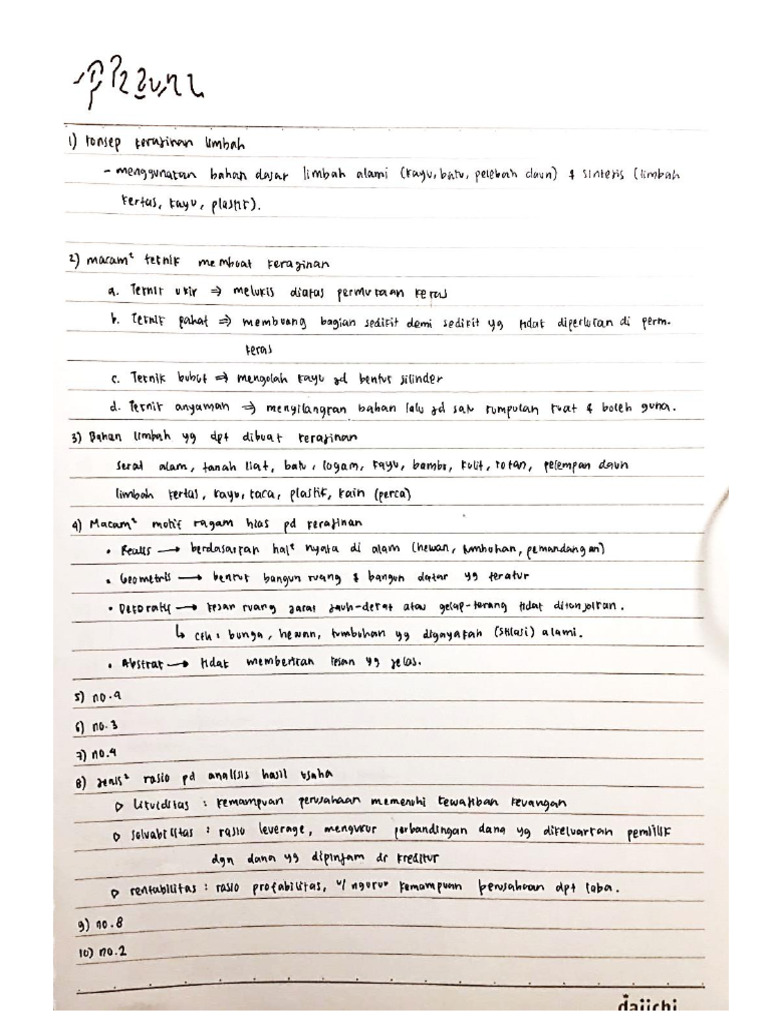 1) Konsep kerajinan limbah
- menggunakan bahan dasar limbah alami (kayu, batu, pelepah daun) & sintetis (limbah
kertas, kayu, plastik).
2) macam² teknik membuat kerajinan
a. Teknik ukir ⇒ melukis diatas permukaan keras
b. Teknik pahat ⇒ membuang bagian sedikit demi sedikit yg tidak diperlukan di perm.
keras
c. Teknik bubut ⇒ mengolah kayu jd bentuk silinder
d. Teknik anyaman ⇒ menyilangkan bahan lalu jd satu kumpulan kuat & boleh guna.
3) Bahan limbah yg dpt dibuat kerajinan
serat alam, tanah liat, batu, logam, kayu, bambu, kulit, rotan, daun
limbah kertas, kayu, kaca, plastik, kain (perca)
4) Macam² motif ragam hias pd kerajinan
• Realis → berdasarkan hal² nyata di alam (hewan, tumbuhan, pemandangan)
• Geometris → bentuk bangun ruang & bangun datar yg teratur
• Dekoratif → kesan ruang jarak jauh-dekat atau gelap-terang tidak ditonjolkan.
↳ cth: bunga, hewan, tumbuhan yg digayakan (stilasi) alami.
• Abstrak → tidak memberikan kesan yg jelas.
5) no.4
6) no.3
7) no.4
8) jenis² rasio pd analisis hasil usaha
▷ likuiditas : kemampuan perusahaan memenuhi kewajiban keuangan
▷ solvabilitas : rasio leverage, mengukur perbandingan dana yg dikeluarkan pemilik
dgn dana yg dipinjam dr kreditur
▷ rentabilitas : rasio profabilitas, u/ ngukur kemampuan perusahaan dpt laba.
9) no.8
10) no.2
daiichi